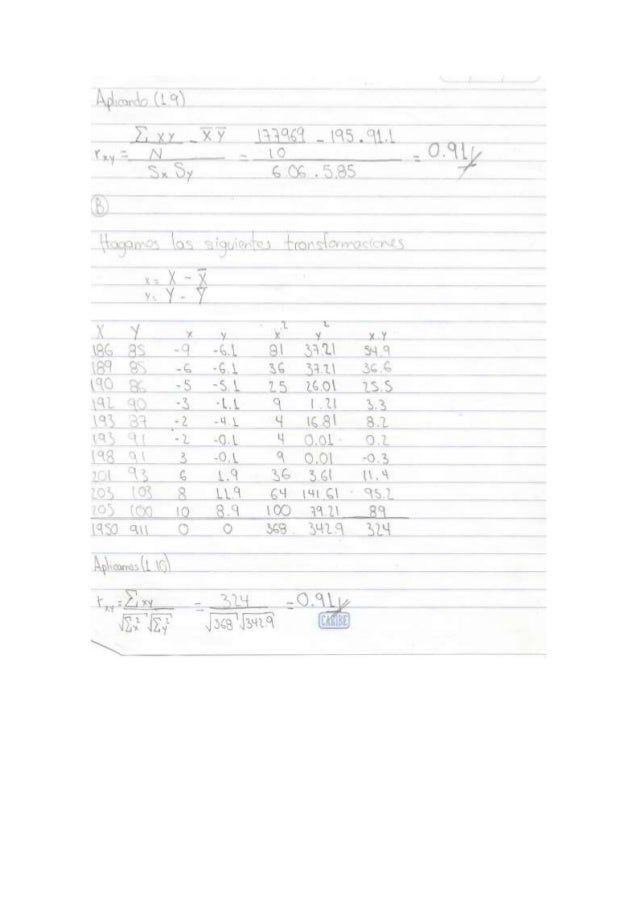 Aplicando (1.9)
r_xy = (Σ XY / N - X̄ Ȳ) / (Sx Sy) = (177969 / 10 - 195 . 91.1) / (6.06 . 5.85) = 0.91
B
Hagamos las siguientes transformaciones
x = X - X̄
y = Y - Ȳ
X Y x y x² y² x y
186 85 -9 -6.1 81 37.21 54.9
189 85 -6 -6.1 36 37.21 36.6
190 86 -5 -5.1 25 26.01 25.5
192 90 -3 -1.1 9 1.21 3.3
193 87 -2 -4.1 4 16.81 8.2
193 91 -2 -0.1 4 0.01 0.2
198 91 3 -0.1 9 0.01 -0.3
201 93 6 1.9 36 3.61 11.4
203 103 8 11.9 64 141.61 95.2
205 100 10 8.9 100 79.21 89
1950 911 0 0 368 342.9 324
Aplicamos (1.10)
r_xy = Σ xy / (√Σx² √Σy²) = 324 / (√368 √342.9) = 0.91
CARIBE